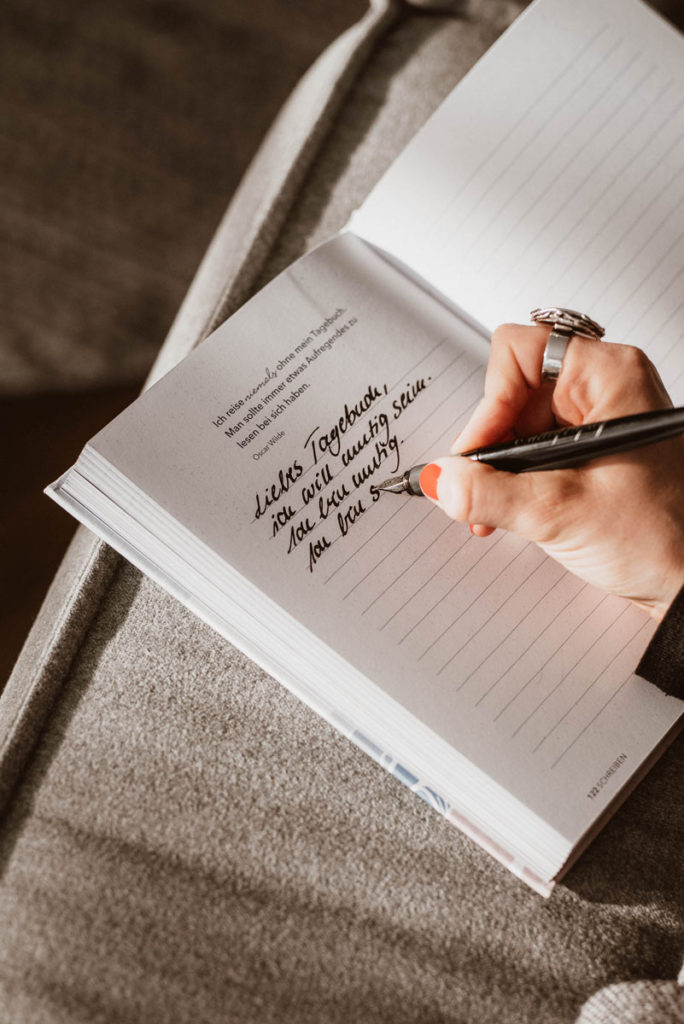 Ich reise niemals ohne mein Tagebuch.
Man sollte immer etwas Aufregendes zu
lesen bei sich haben.
Oscar Wilde
Liebes Tagebuch,
ich will mutig sein.
Ich bin mutig.
Ich bin s
122 SCHREIBEN